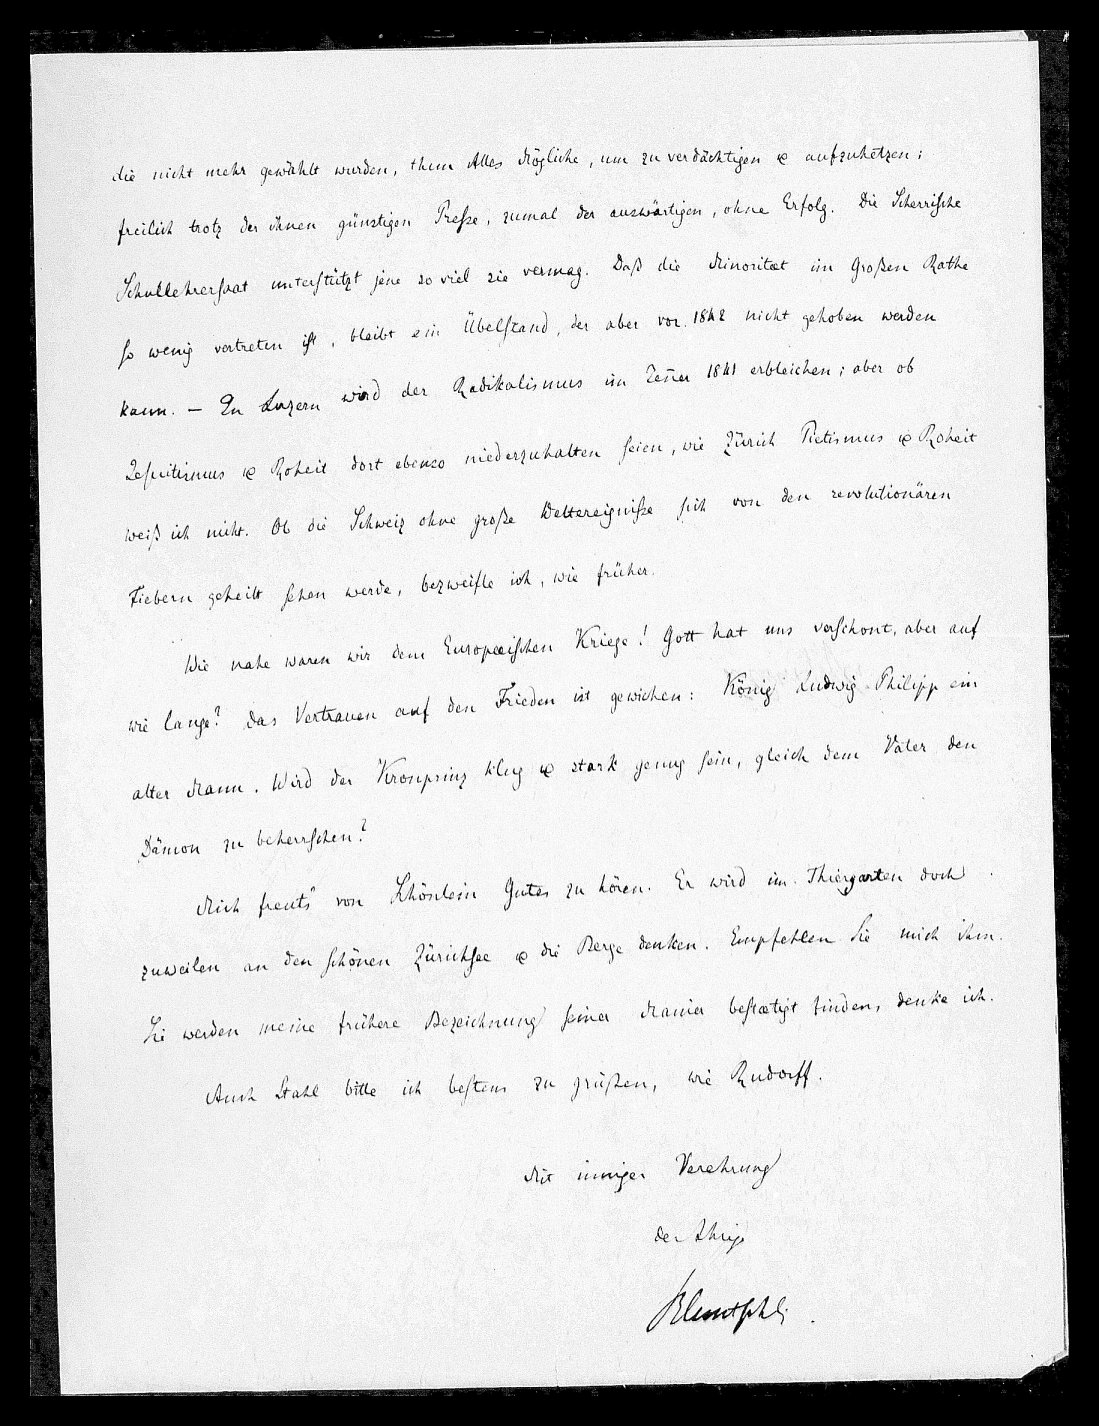 die nicht mehr gewählt wurden, thun Alles Mögliche, um zu verdächtigen & aufzuhetzen;
freilich trotz der ihnen günstigen Preße, zumal der auswärtigen, ohne Erfolg. Die Scherrische
Schullehrersaat unterstützt jene so viel sie vermag. Daß die Minoritæt im Großen Rathe
so wenig vertreten ist, bleibt ein Übelstand, der aber vor 1842 nicht gehoben werden
kann. — In Luzern wird der Radikalismus im Jener 1841 erbleichen; aber ob
Jesuitismus & Roheit dort ebenso niederzuhalten seien, wie Zürich Pietismus & Roheit
weiß ich nicht. Ob die Schweiz ohne große Weltereigniße sich von den revolutionären
Fiebern geheilt sehen werde, bezweifle ich, wie früher.
Wie nahe waren wir dem Europæischen Kriege! Gott hat uns verschont, aber auf
wie lange? Das Vertrauen auf den Frieden ist gewichen: König Ludwig Philipp ein
alter Mann. Wird der Kronprinz klug & stark genug sein, gleich dem Vater den
Dämon zu beherrschen?
Mich freuts von Schönlein Gutes zu hören. Er wird im Thiergarten doch
zuweilen an den schönen Zürichsee & die Berge denken. Empfehlen Sie mich ihm.
Sie werden meine frühere Bezeichnung seiner Manier bestætigt finden, denke ich.
Auch Stahl bitte ich bestens zu grüßen, wie Rudorff.
Mit inniger Verehrung
der Ihrige
Bluntschli.